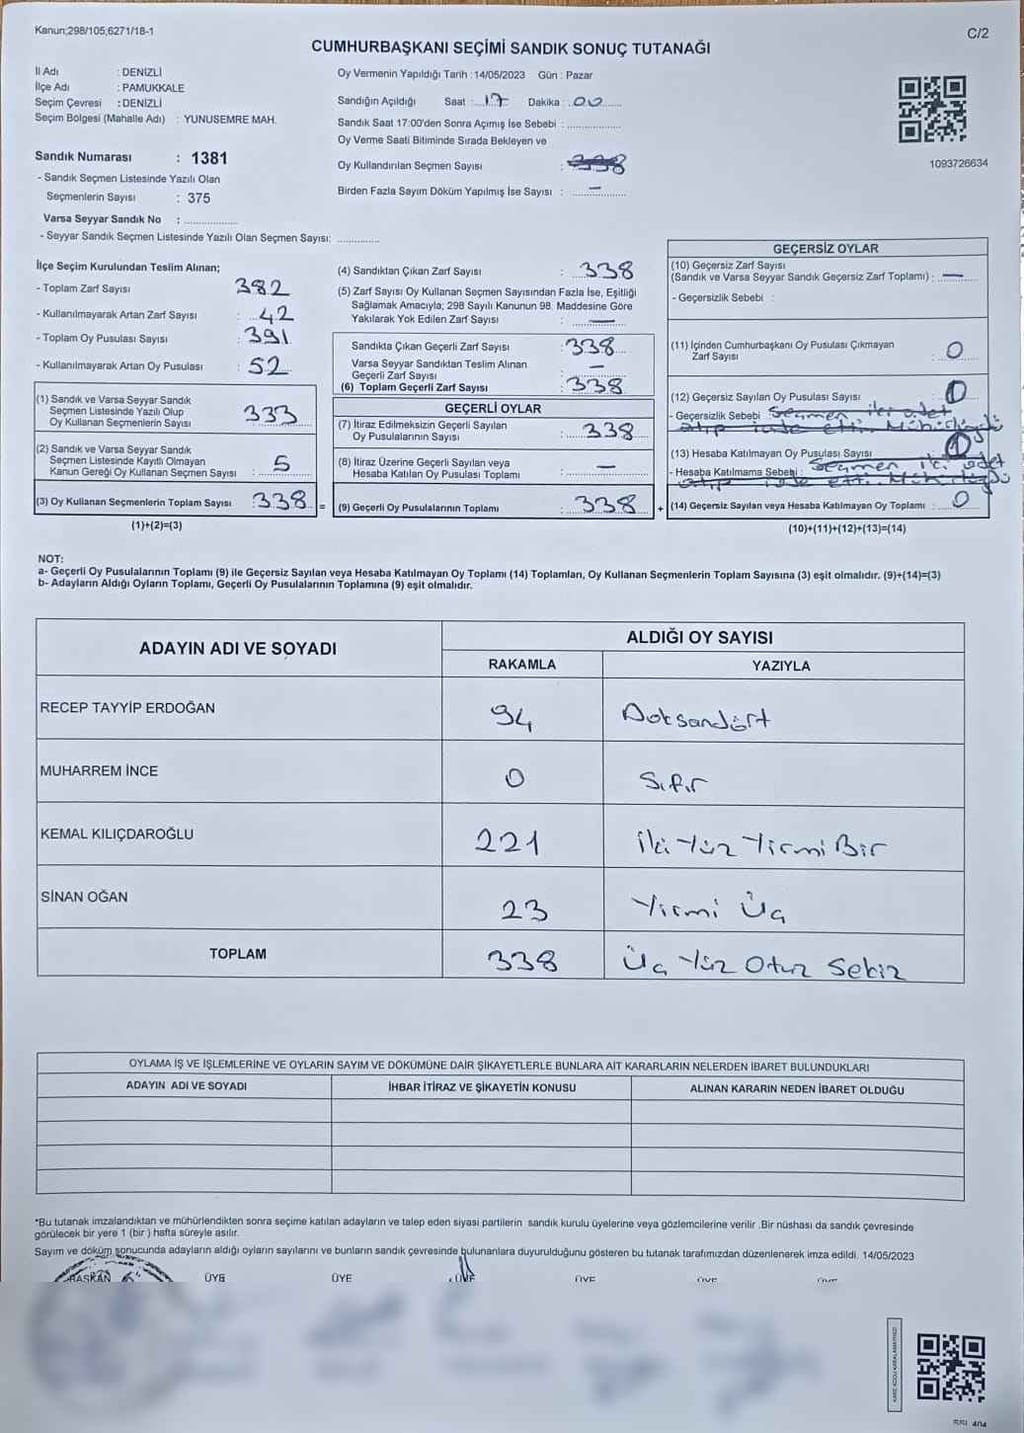 Kanun;298/105,6271/18-1
C/2
CUMHURBAŞKANI SEÇİMİ SANDIK SONUÇ TUTANAĞI
İl Adı : DENİZLİ
İlçe Adı : PAMUKKALE
Seçim Çevresi : DENİZLİ
Seçim Bölgesi (Mahalle Adı) : YUNUSEMRE MAH.
Sandık Numarası : 1381
- Sandık Seçmen Listesinde Yazılı Olan
Seçmenlerin Sayısı : 375
Varsa Seyyar Sandık No :
- Seyyar Sandık Seçmen Listesinde Yazılı Olan Seçmen Sayısı:
Oy Vermenin Yapıldığı Tarih : 14/05/2023 Gün : Pazar
Sandığın Açıldığı Saat : 17 Dakika : 00
Sandık Saat 17:00'den Sonra Açımış İse Sebebi :
Oy Verme Saati Bitiminde Sırada Bekleyen ve
Oy Kullandırılan Seçmen Sayısı : 338
Birden Fazla Sayım Döküm Yapılmış İse Sayısı : –
1093726634
İlçe Seçim Kurulundan Teslim Alınan;
- Toplam Zarf Sayısı 382
- Kullanılmayarak Artan Zarf Sayısı : 42
- Toplam Oy Pusulası Sayısı : 391
- Kullanılmayarak Artan Oy Pusulası : 52
(1) Sandık ve Varsa Seyyar Sandık
Seçmen Listesinde Yazılı Olup
Oy Kullanan Seçmenlerin Sayısı 333
(2) Sandık ve Varsa Seyyar Sandık
Seçmen Listesinde Kayıtlı Olmayan
Kanun Gereği Oy Kullanan Seçmen Sayısı : 5
(3) Oy Kullanan Seçmenlerin Toplam Sayısı : 338 =
(1)+(2)=(3)
(4) Sandıktan Çıkan Zarf Sayısı : 338
(5) Zarf Sayısı Oy Kullanan Seçmen Sayısından Fazla İse, Eşitliği
Sağlamak Amacıyla; 298 Sayılı Kanunun 98. Maddesine Göre
Yakılarak Yok Edilen Zarf Sayısı : –
Sandıkta Çıkan Geçerli Zarf Sayısı : 338
Varsa Seyyar Sandıktan Teslim Alınan
Geçerli Zarf Sayısı : –
(6) Toplam Geçerli Zarf Sayısı : 338
GEÇERLİ OYLAR
(7) İtiraz Edilmeksizin Geçerli Sayılan
Oy Pusulalarının Sayısı : 338
(8) İtiraz Üzerine Geçerli Sayılan veya
Hesaba Katılan Oy Pusulası Toplamı : –
(9) Geçerli Oy Pusulalarının Toplamı : 338 +
GEÇERSİZ OYLAR
(10) Geçersiz Zarf Sayısı
(Sandık ve Varsa Seyyar Sandık Geçersiz Zarf Toplamı) : –
- Geçersizlik Sebebi :
(11) İçinden Cumhurbaşkanı Oy Pusulası Çıkmayan
Zarf Sayısı : 0
(12) Geçersiz Sayılan Oy Pusulası Sayısı : 0
- Geçersizlik Sebebi Seçmen iki adet
atıp iade etti. Mühürlendi
(13) Hesaba Katılmayan Oy Pusulası Sayısı
- Hesaba Katılmama Sebebi : Seçmen iki adet
atıp iade etti
(14) Geçersiz Sayılan veya Hesaba Katılmayan Oy Toplamı : 0
(10)+(11)+(12)+(13)=(14)
NOT:
a- Geçerli Oy Pusulalarının Toplamı (9) ile Geçersiz Sayılan veya Hesaba Katılmayan Oy Toplamı (14) Toplamları, Oy Kullanan Seçmenlerin Toplam Sayısına (3) eşit olmalıdır. (9)+(14)=(3)
b- Adayların Aldığı Oyların Toplamı, Geçerli Oy Pusulalarının Toplamına (9) eşit olmalıdır.
ADAYIN ADI VE SOYADI
ALDIĞI OY SAYISI
RAKAMLA YAZIYLA
RECEP TAYYİP ERDOĞAN 94 Doksandört
MUHARREM İNCE 0 Sıfır
KEMAL KILIÇDAROĞLU 221 İki Yüz Yirmi Bir
SİNAN OĞAN 23 Yirmi Üç
TOPLAM 338 Üç Yüz Otuz Sekiz
OYLAMA İŞ VE İŞLEMLERİNE VE OYLARIN SAYIM VE DÖKÜMÜNE DAİR ŞİKAYETLERLE BUNLARA AİT KARARLARIN NELERDEN İBARET BULUNDUKLARI
ADAYIN ADI VE SOYADI İHBAR İTİRAZ VE ŞİKAYETİN KONUSU ALINAN KARARIN NEDEN İBARET OLDUĞU
*Bu tutanak imzalandıktan ve mühürlendikten sonra seçime katılan adayların ve talep eden siyasi partilerin sandık kurulu üyelerine veya gözlemcilerine verilir .Bir nüshası da sandık çevresinde
görülecek bir yere 1 (bir ) hafta süreyle asılır.
Sayım ve döküm sonucunda adayların aldığı oyların sayılarını ve bunların sandık çevresinde bulunanlara duyurulduğunu gösteren bu tutanak tarafımızdan düzenlenerek imza edildi. 14/05/2023
BAŞKAN ÜYE ÜYE ÜYE ÜYE ÜYE ÜYE